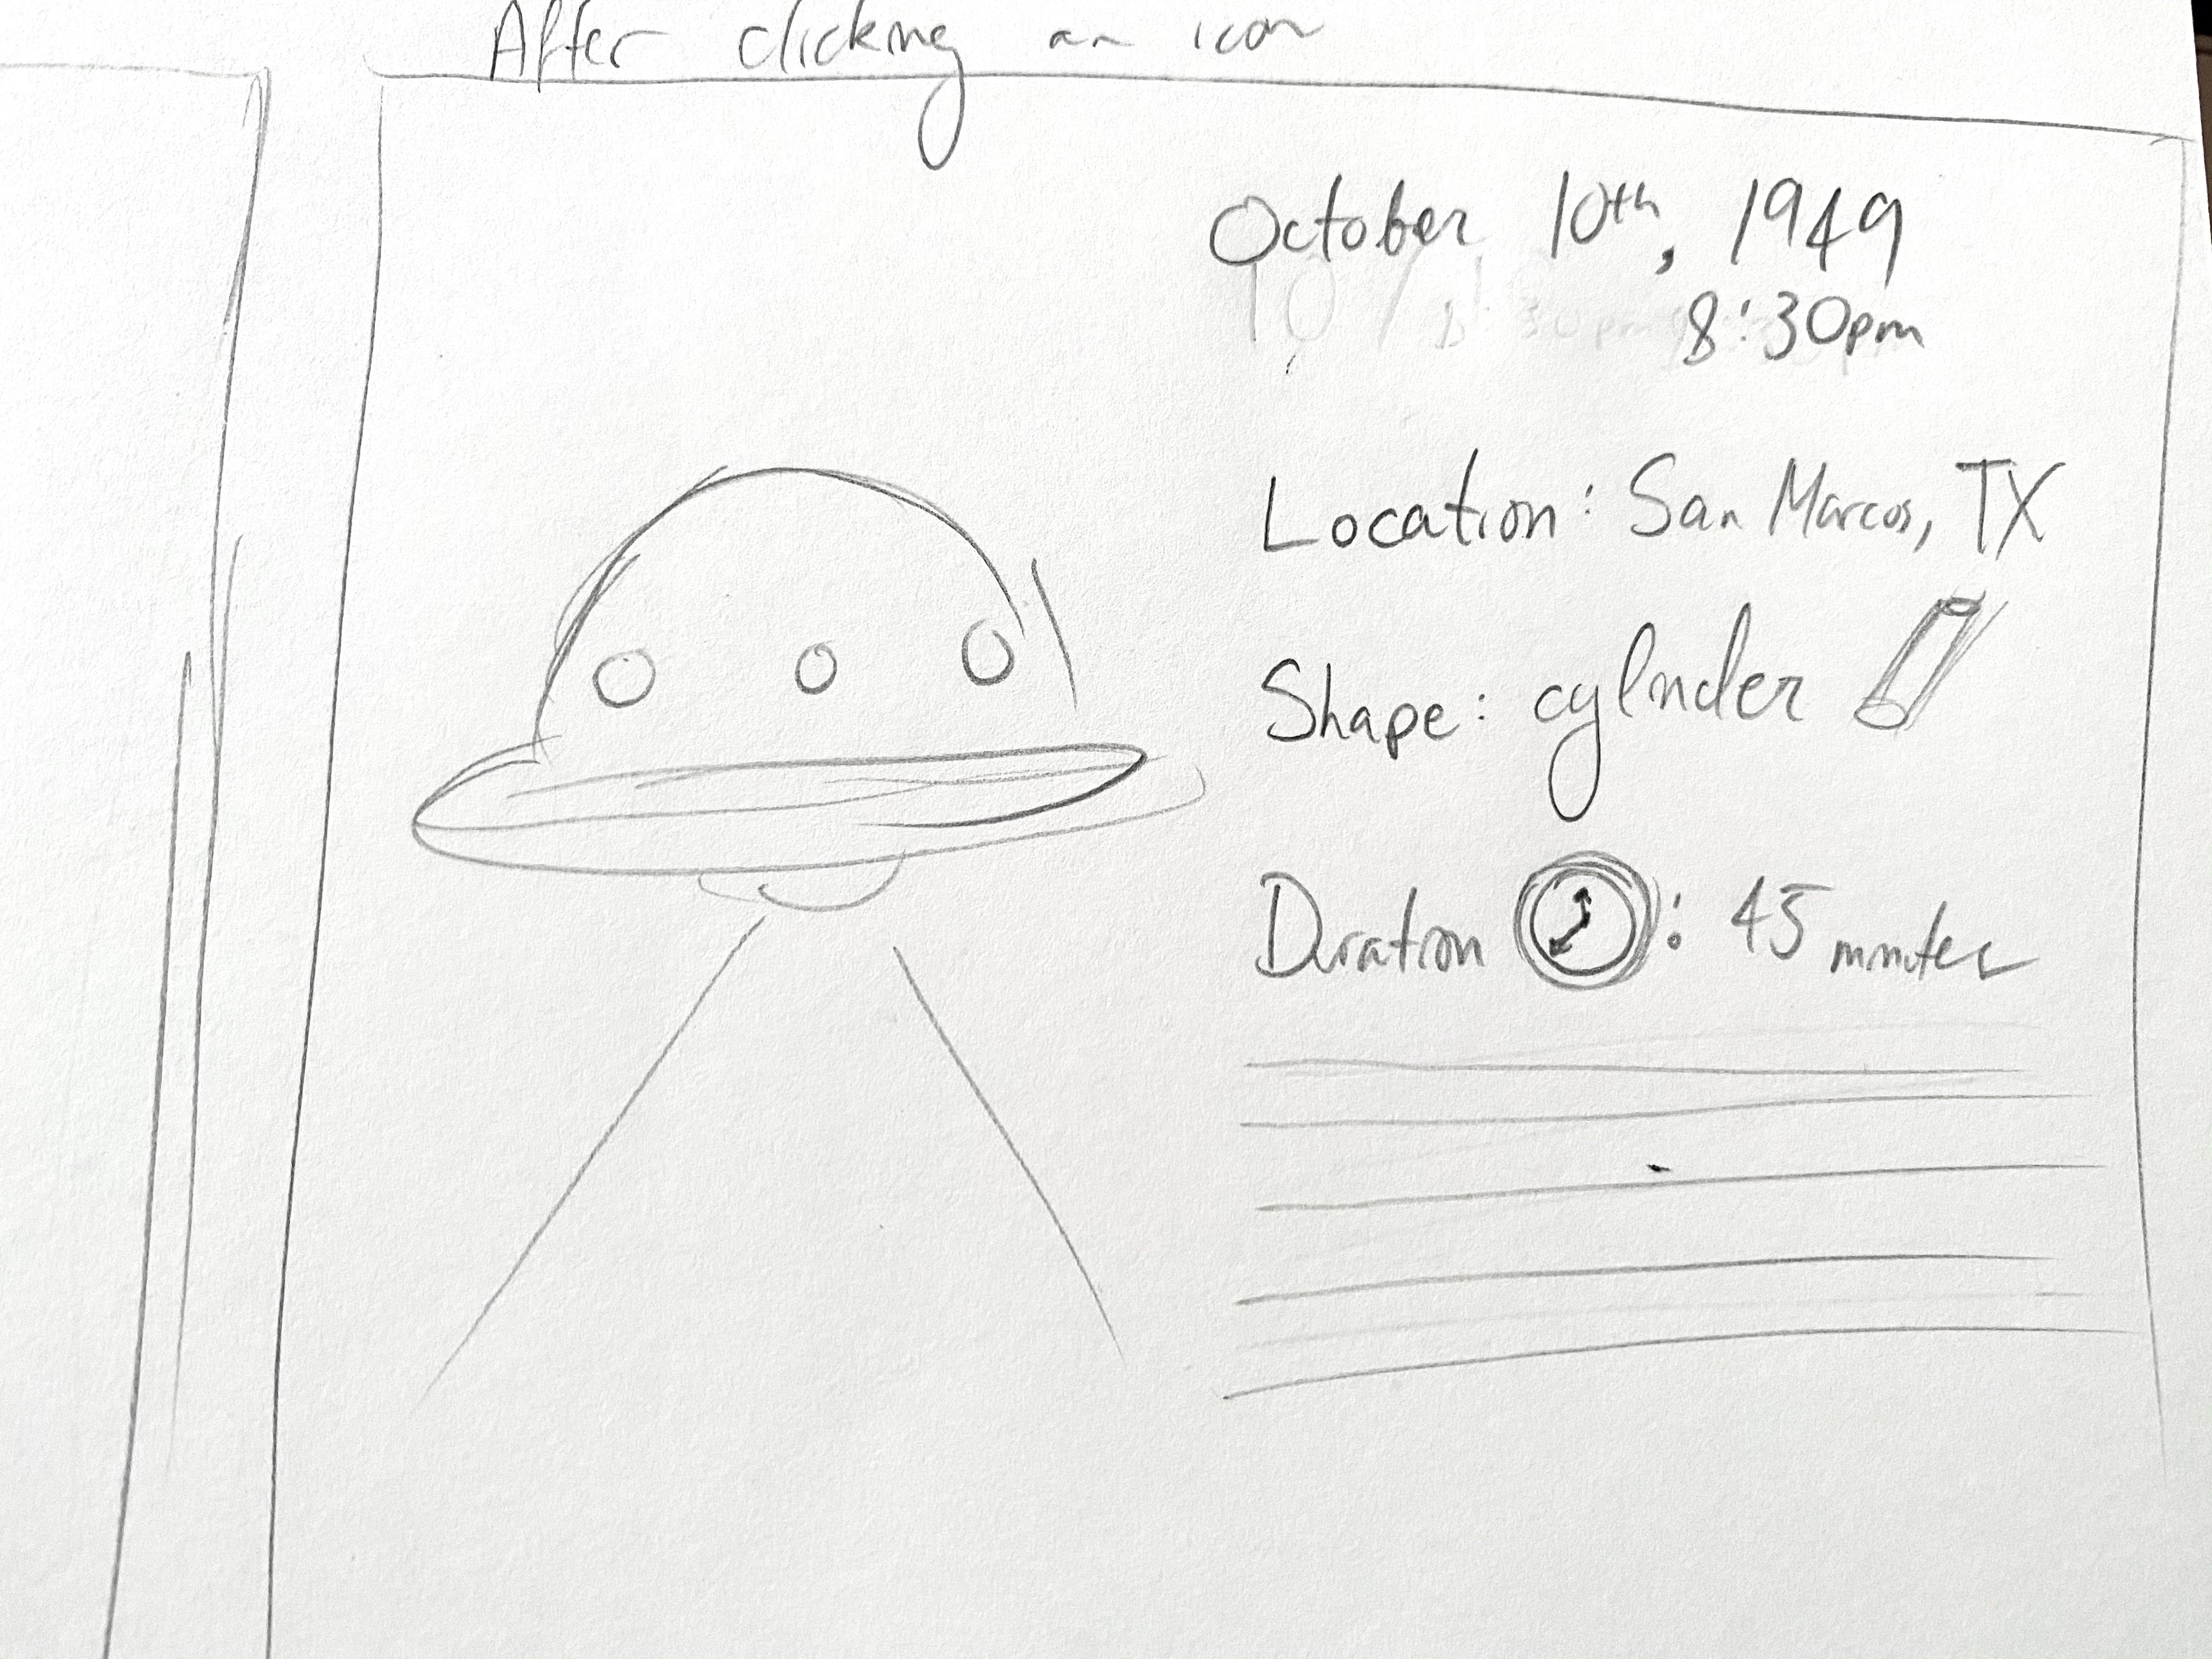 After clicking an icon
October 10th, 1949
8:30pm
Location: San Marcos, TX
Shape: cylinder
Duration : 45 minutes